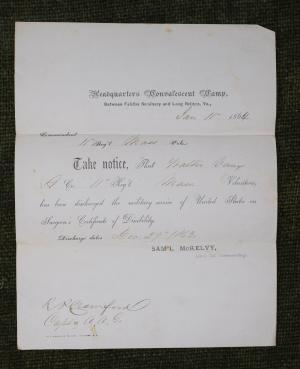 Headquarters Convalescent Camp,
Between Fairfax Seminary and Long Bridge, Va.,
Jan 15 1864
Commandant
11 Reg't Mass Vols
Take notice, That Walter
A Co. 11th Reg't Mass Volunteers,
has been discharged the military service of United States on
Surgeon's Certificate of Disability.
Discharge dates
SAM'L McKELVY,
Commanding.
Crawford
Capt & A. A. G.